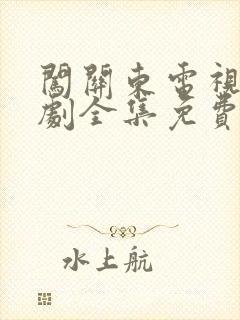 闖關東電視
劇全集免費
水上航